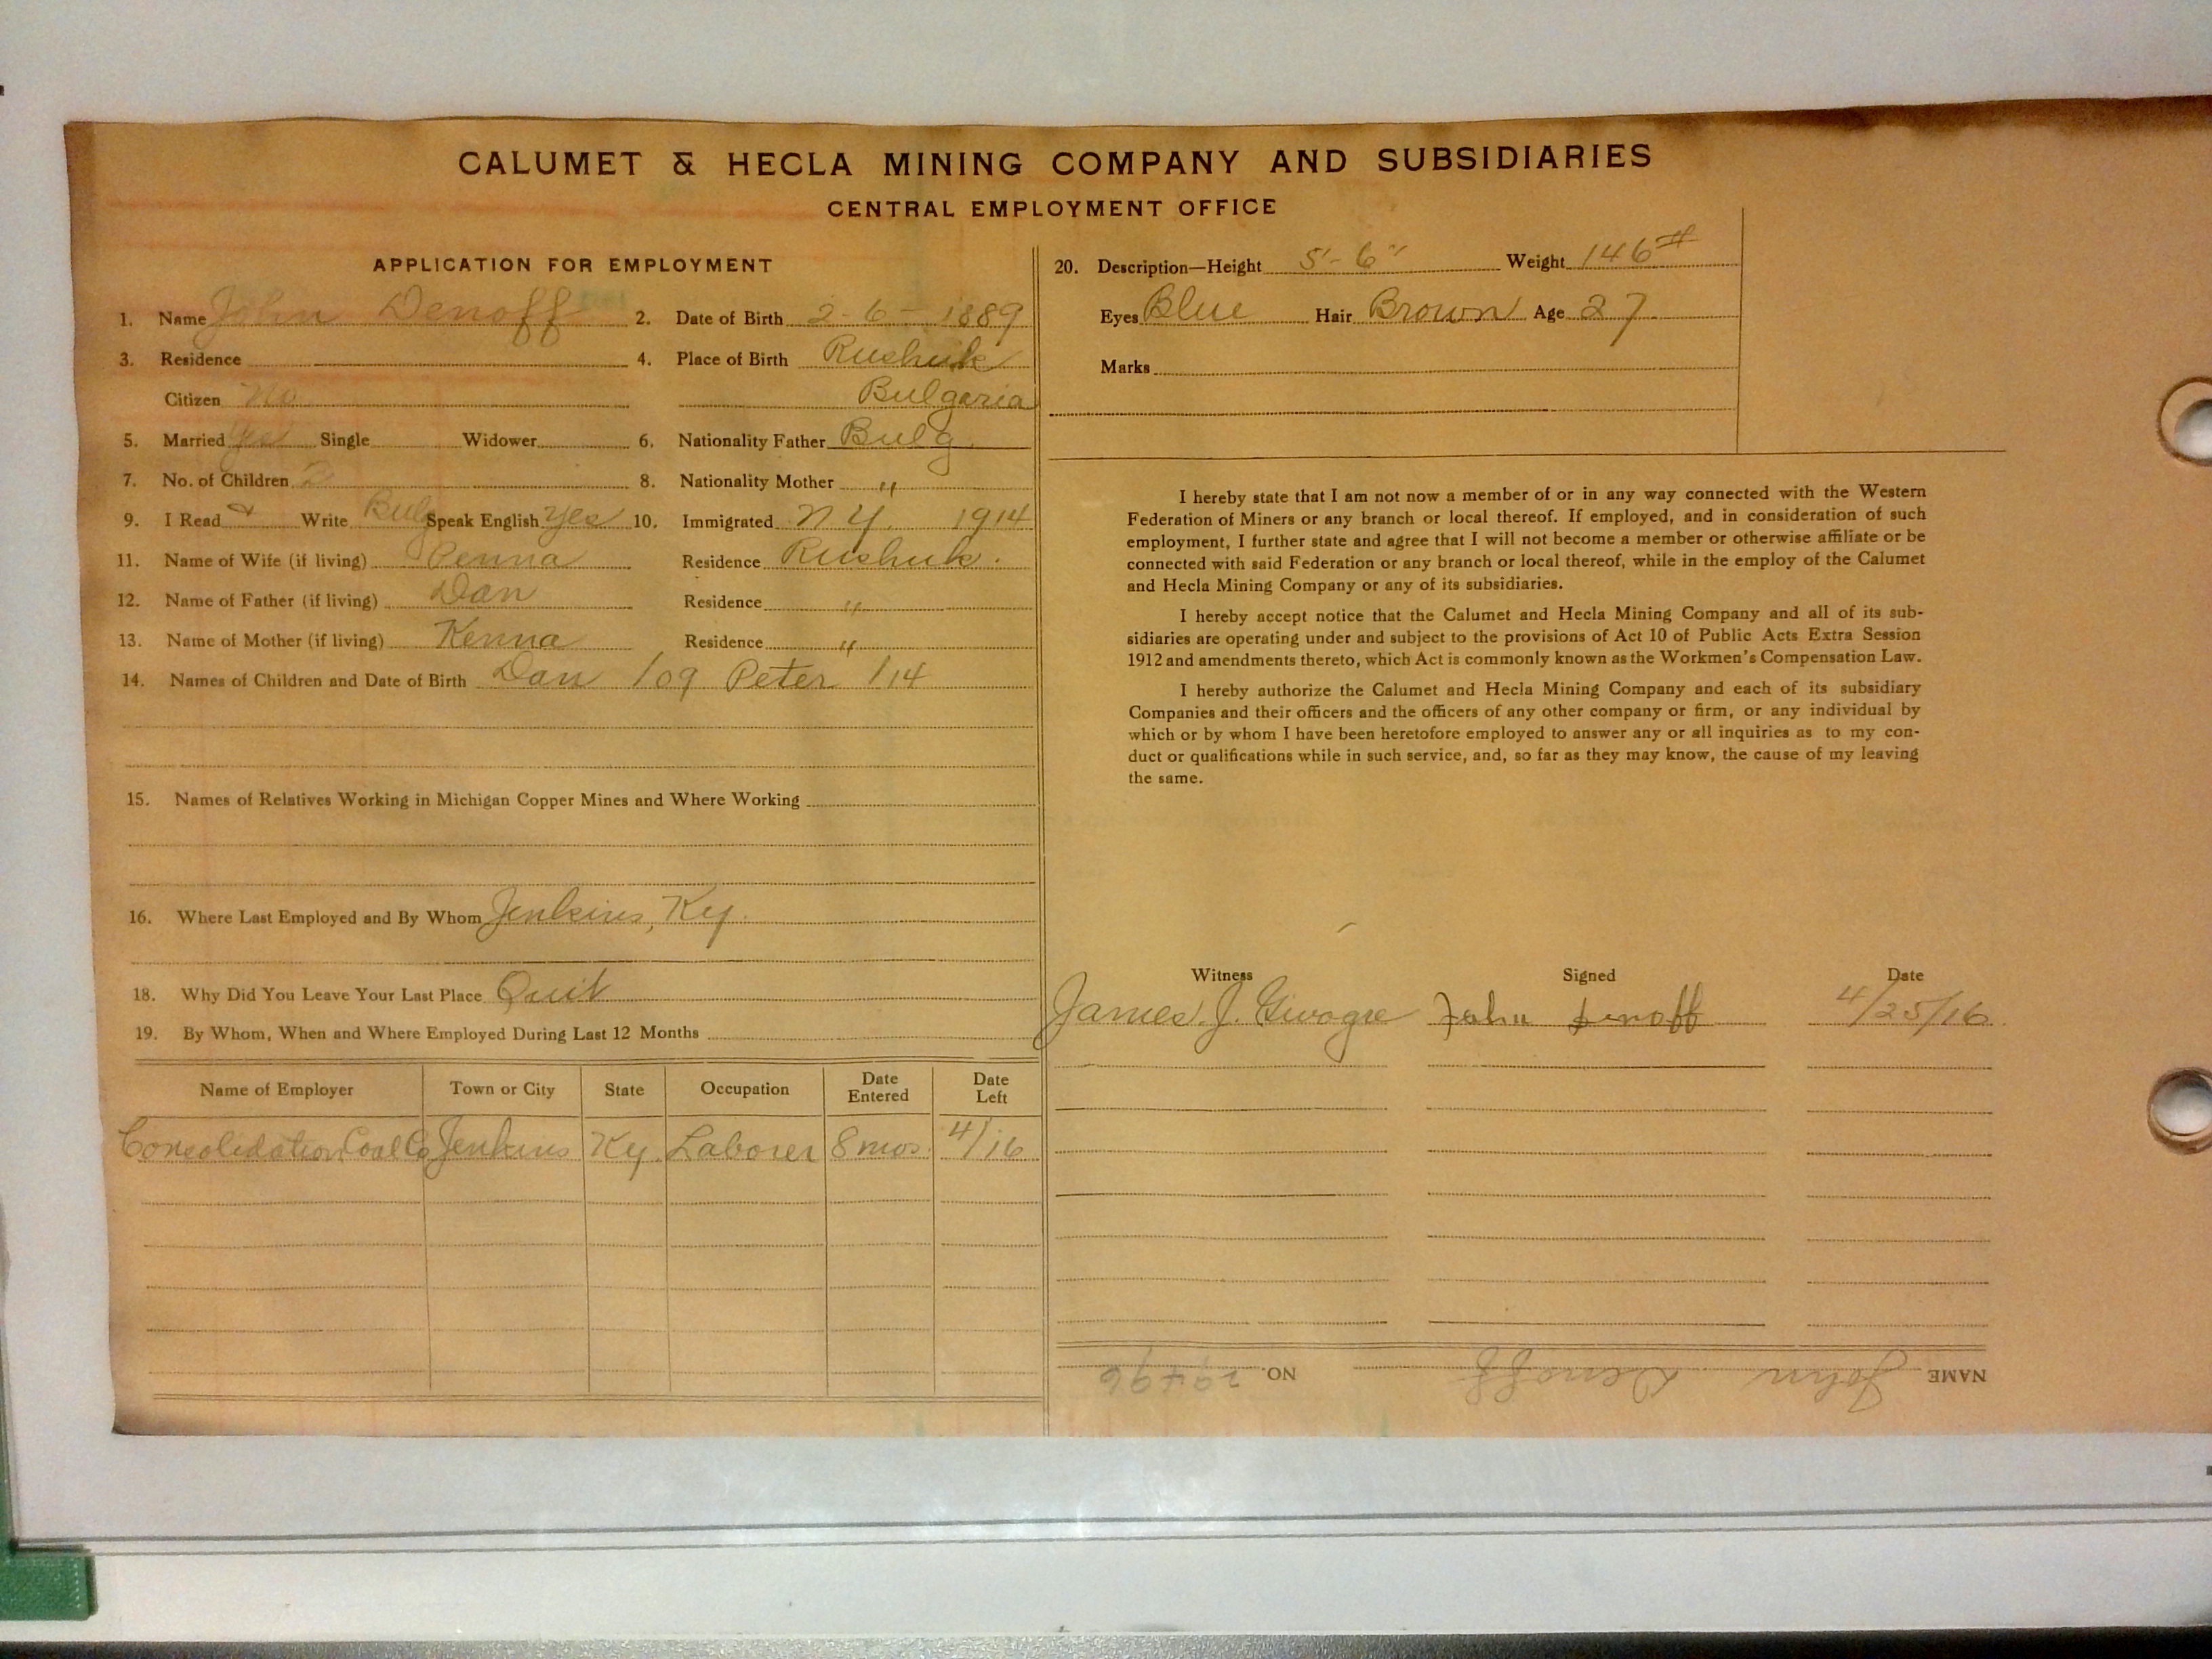 CALUMET & HECLA MINING COMPANY AND SUBSIDIARIES
CENTRAL EMPLOYMENT OFFICE
APPLICATION FOR EMPLOYMENT
1. Name John Denoff 2. Date of Birth 2-6-1889
3. Residence 4. Place of Birth Rushuk
Citizen No Bulgaria
5. Married yes Single Widower 6. Nationality Father Bulg.
7. No. of Children 2 8. Nationality Mother "
9. I Read & Write Bulg Speak English yes 10. Immigrated N Y. 1914
11. Name of Wife (if living) Penna Residence Rushuk.
12. Name of Father (if living) Dan Residence "
13. Name of Mother (if living) Kenna Residence "
14. Names of Children and Date of Birth Dan /09 Peter /14
15. Names of Relatives Working in Michigan Copper Mines and Where Working
16. Where Last Employed and By Whom Jenkins, Ky.
18. Why Did You Leave Your Last Place Quit
19. By Whom, When and Where Employed During Last 12 Months
Name of Employer Town or City State Occupation Date Entered Date Left
Consolidation Coal Co Jenkins Ky. Laborer 8 mos. 4/16
20. Description—Height 5'-6" Weight 146#
Eyes Blue Hair Brown Age 27
Marks
I hereby state that I am not now a member of or in any way connected with the Western
Federation of Miners or any branch or local thereof. If employed, and in consideration of such
employment, I further state and agree that I will not become a member or otherwise affiliate or be
connected with said Federation or any branch or local thereof, while in the employ of the Calumet
and Hecla Mining Company or any of its subsidiaries.
I hereby accept notice that the Calumet and Hecla Mining Company and all of its sub-
sidiaries are operating under and subject to the provisions of Act 10 of Public Acts Extra Session
1912 and amendments thereto, which Act is commonly known as the Workmen's Compensation Law.
I hereby authorize the Calumet and Hecla Mining Company and each of its subsidiary
Companies and their officers and the officers of any other company or firm, or any individual by
which or by whom I have been heretofore employed to answer any or all inquiries as to my con-
duct or qualifications while in such service, and, so far as they may know, the cause of my leaving
the same.
Witness Signed Date
James. J. John Denoff 4/25/16
NAME John Denoff NO. 29496